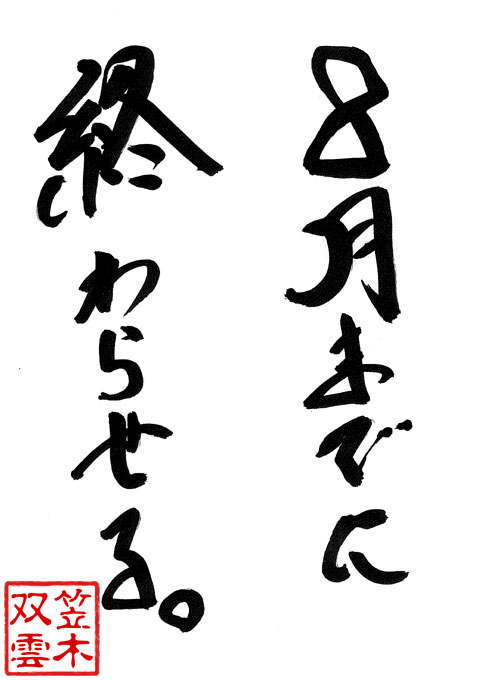 8月までに
終わらせる。
笠木
双雲